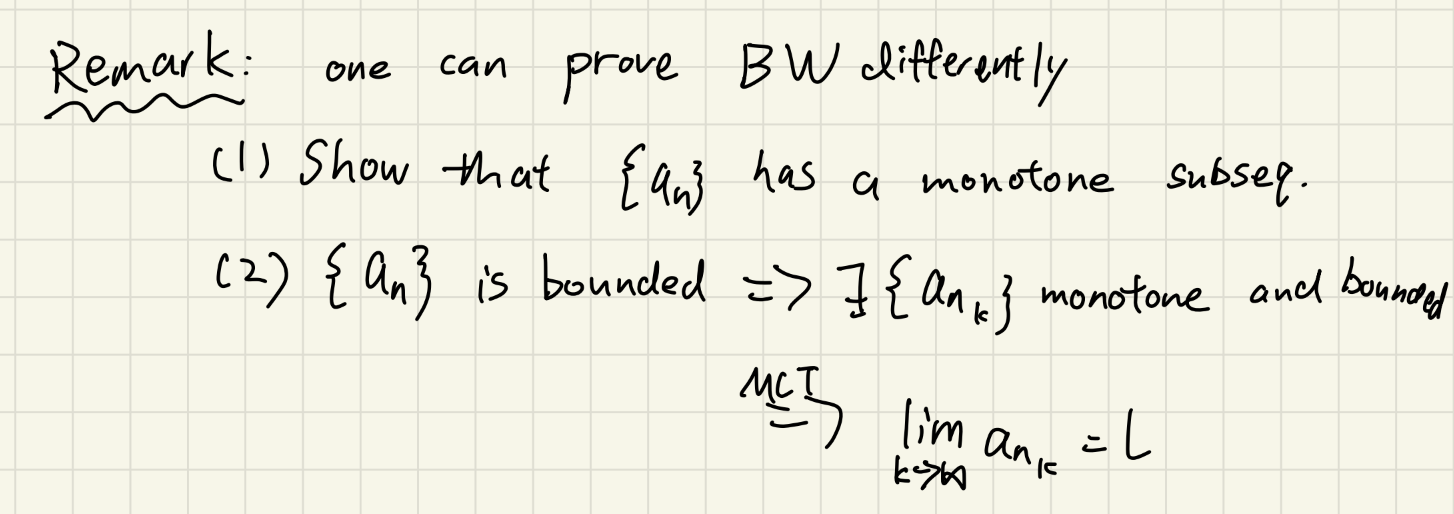 Remark: one can prove BW differently
(1) Show that {aₙ} has a monotone subseq.
(2) {aₙ} is bounded => ∃ {aₙₖ} monotone and bounded
MCT
=> lim aₙₖ = L
k->∞